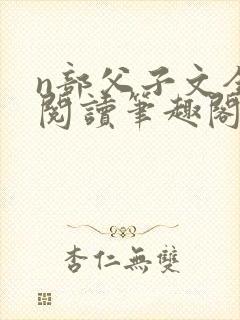 n部父子文全
閱讀筆趣閣
杏仁無雙